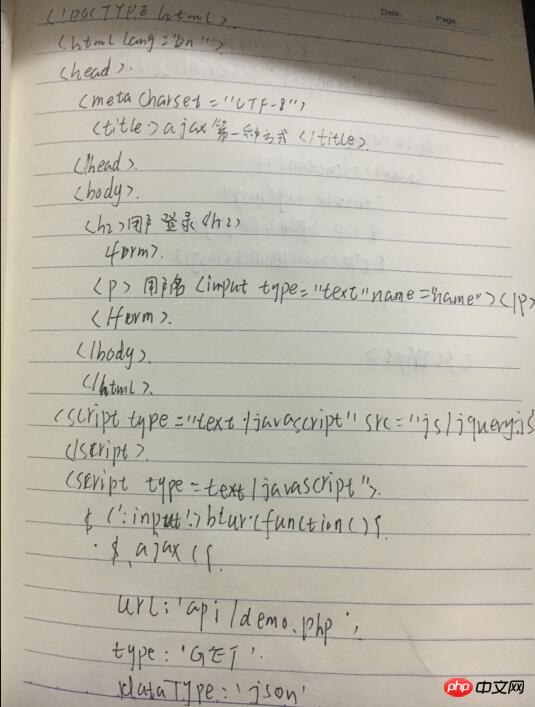 Date. Page.
<!DOCTYPE html>
<html lang="en">
<head>.
<meta charset="UTF-8">
<title>ajax第一种方式</title>
</head>
<body>.
<h2>用户登录</h2>
form>.
<p>用户名<input type="text" name="name"></p>
</form>.
</body>.
</html>.
<script type="text/javascript" src="js/jquery.js
</script>.
<script type=text/javascript">.
$(':input').blur(function(){
$.ajax({
url:'api/demo.php',
type:'GET'.
dataType:'json'
php 中文网